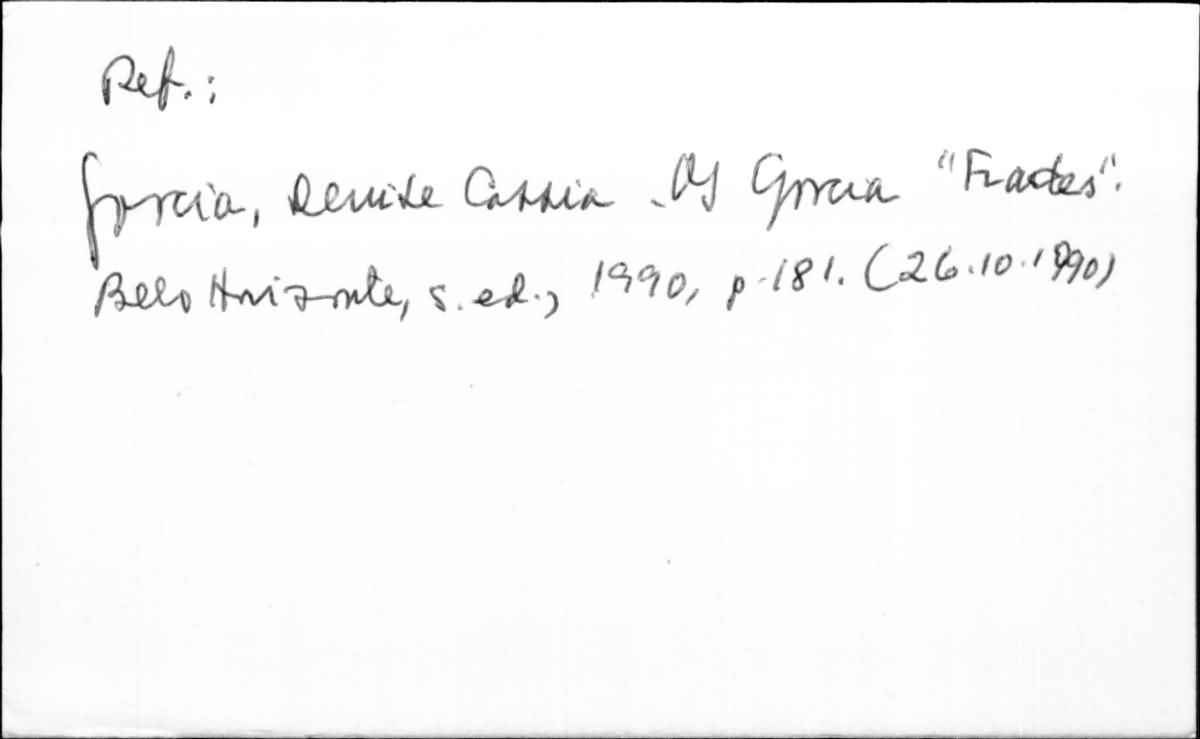 Ref.:
Garcia, Denise Cassia. Os Garcia "Frades".
Belo Horizonte, s. ed., 1990, p. 181. (26.10.1990)